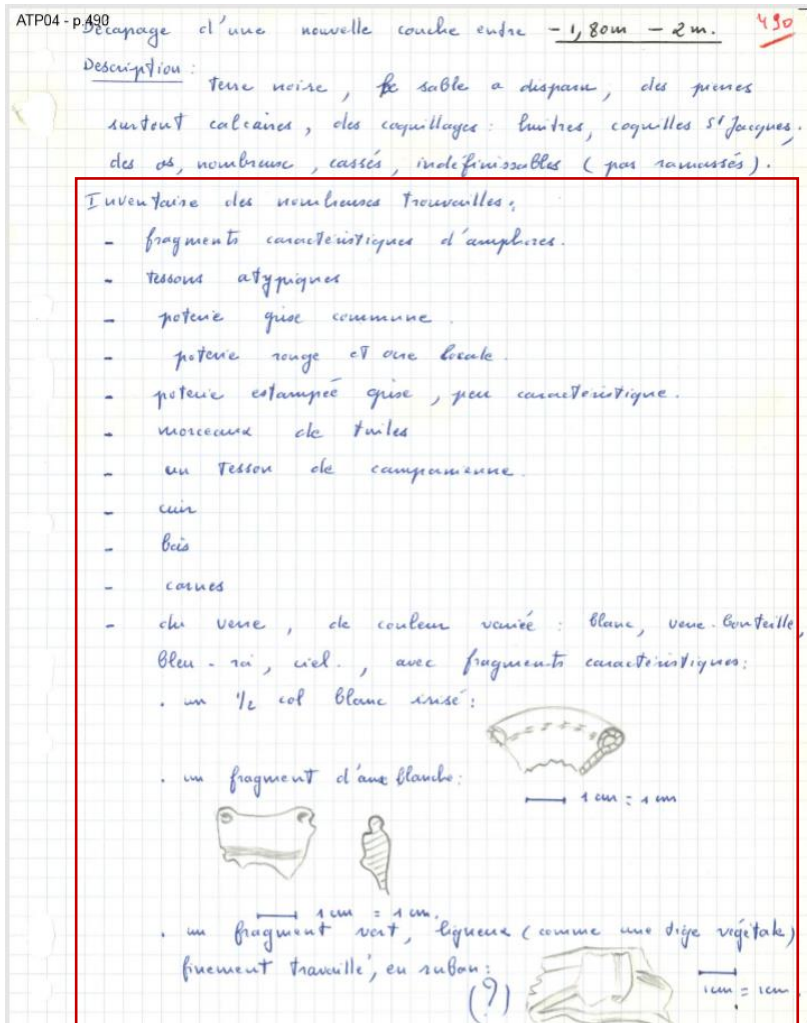 ATP04 - p.490
Décapage d'une nouvelle couche entre - 1,80m - 2m. 490
Description :
Terre noire, le sable a disparu, des pierres
surtout calcaires, des coquillages : huîtres, coquilles St Jacques,
des os, nombreux, cassés, indéfinissables (pas ramassés).
Inventaire des nombreuses trouvailles :
- fragments caractéristiques d'amphores.
- tessons atypiques
- poterie grise commune.
- poterie rouge et ocre locale.
- poterie estampée grise, peu caractéristique.
- morceaux de tuiles
- un Tesson de campanienne.
- cuir
- bois
- cornes
- du verre, de couleur variée : blanc, verre-bouteille,
bleu-roi, ciel., avec fragments caractéristiques :
. un 1/2 col blanc irisé :
1 cm = 1 cm
. un fragment d'anse blanche :
1 cm = 1 cm.
. un fragment vert, ligneux (comme une tige végétale)
finement travaillé, en ruban :
(?)
1cm = 1cm